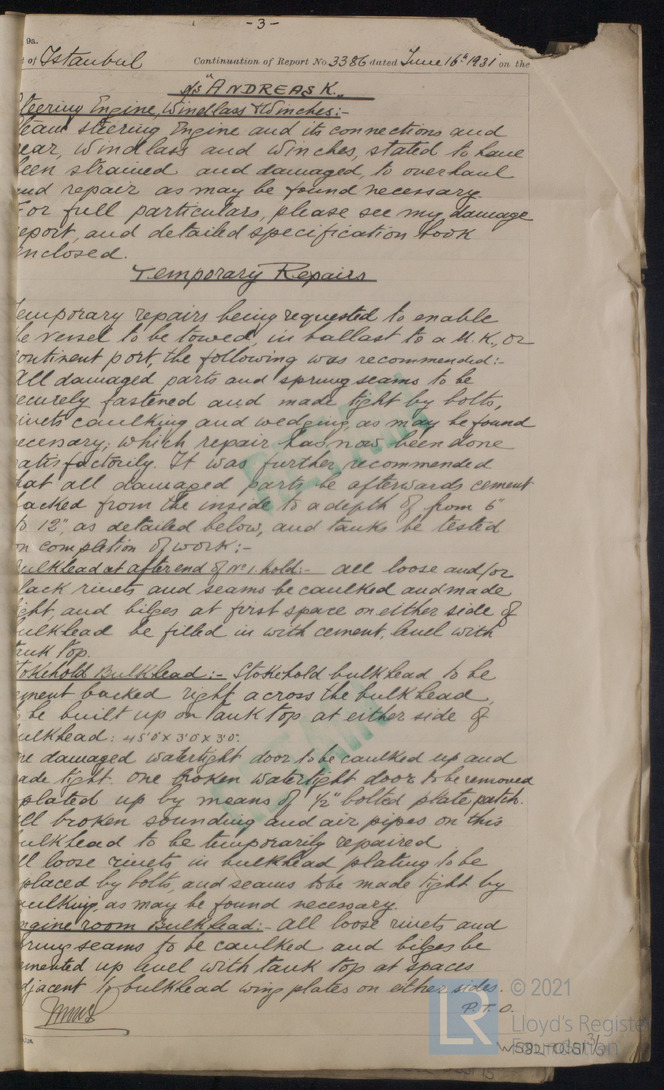 -3-
9a.
of Istanbul Continuation of Report No 3386 dated June 16th 1931 on the
s/s "ANDREAS K."
teering Engine, Windlass & Winches:-
team steering Engine and its connections and
ear, windlass and winches, stated to have
een strained and damaged, to overhaul
nd repair as may be found necessary.
For full particulars, please see my damage
eport, and detailed specification book
nclosed.
Temporary Repairs
emporary repairs being requested to enable
he vessel to be towed, in ballast to a U.K., or
ontinent port, the following was recommended:-
All damaged parts and sprung seams to be
ecurely fastened and made tight by bolts,
ivets caulking and wedging, as may be found
ecessary; which repair has now been done
atisfactorily. It was further recommended
hat all damaged parts be afterwards cement
acked from the inside to a depth of from 6"
to 12", as detailed below, and tanks be tested
on completion of work:-
ulkhead at after end of No 1 hold:- all loose and/or
lack rivets and seams be caulked and made
ight, and bilges at first space on either side of
ulkhead be filled in with cement, level with
ank top.
tokehold Bulkhead:- Stokehold bulkhead to be
ement backed right across the bulkhead,
be built up on Tank top at either side of
ulkhead: 45'0" x 3'0" x 3'0".
ne damaged watertight door to be caulked up and
ade tight. one broken watertight door to be removed
plated up by means of 1/2" bolted plate patch.
ll broken sounding and air pipes on this
ulkhead to be temporarily repaired
ll loose rivets in bulkhead plating to be
placed by bolts, and seams to be made tight by
aulking, as may be found necessary.
ngine room Bulkhead:- all loose rivets and
prung seams to be caulked and bilges be
mented up level with tank top at spaces
djacent to bulkhead wing plates on either sides.
P.T.O.
LR © 2021
Lloyd's Register
Foundation